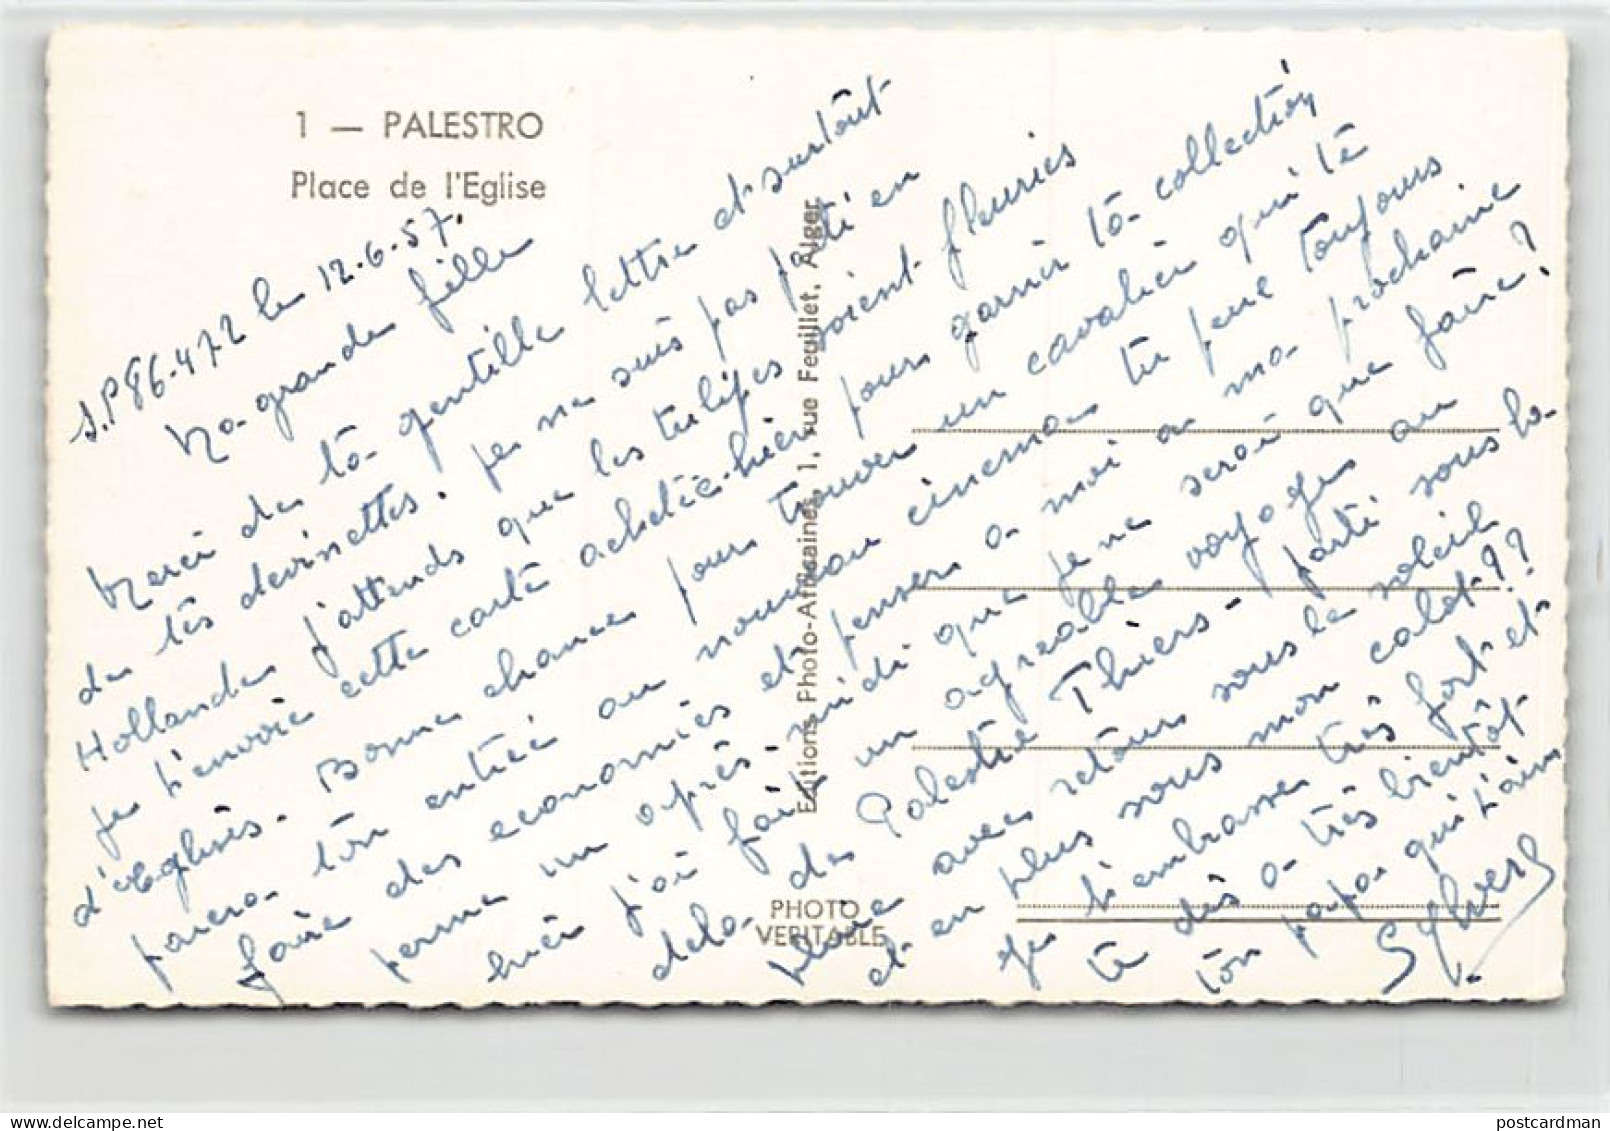 1 — PALESTRO
Place de l'Eglise
S.P 86-472 le 12.6.57.
Ma grande fille
Merci de ta gentille lettre et surtout
de tes devinettes. je ne suis pas parti en
Hollande j'attends que les tulipes soient fleuries
je t'envoie cette carte achetée hier pour garnir ta collection
d'Eglises. Bonne chance pour trouver un cavalier qui te
paiera ton entrée au nouveau cinema tu peux toujours
faire des economies et penser a moi a ma prochaine
perme un après-midi que je ne serai que faire?
hier j'ai fait un agreable voyage au
dela de Palestro Thiers - parti sous la
pluie avec retour sous le soleil
et en plus sous mon calot??
je t'embrasse très fort et
te dis a très bientôt
ton papa qui t'aime
Sylvers
Editions Photo-Africaines, 1, rue Feuillet, Alger.
PHOTO
VERITABLE
postcardman